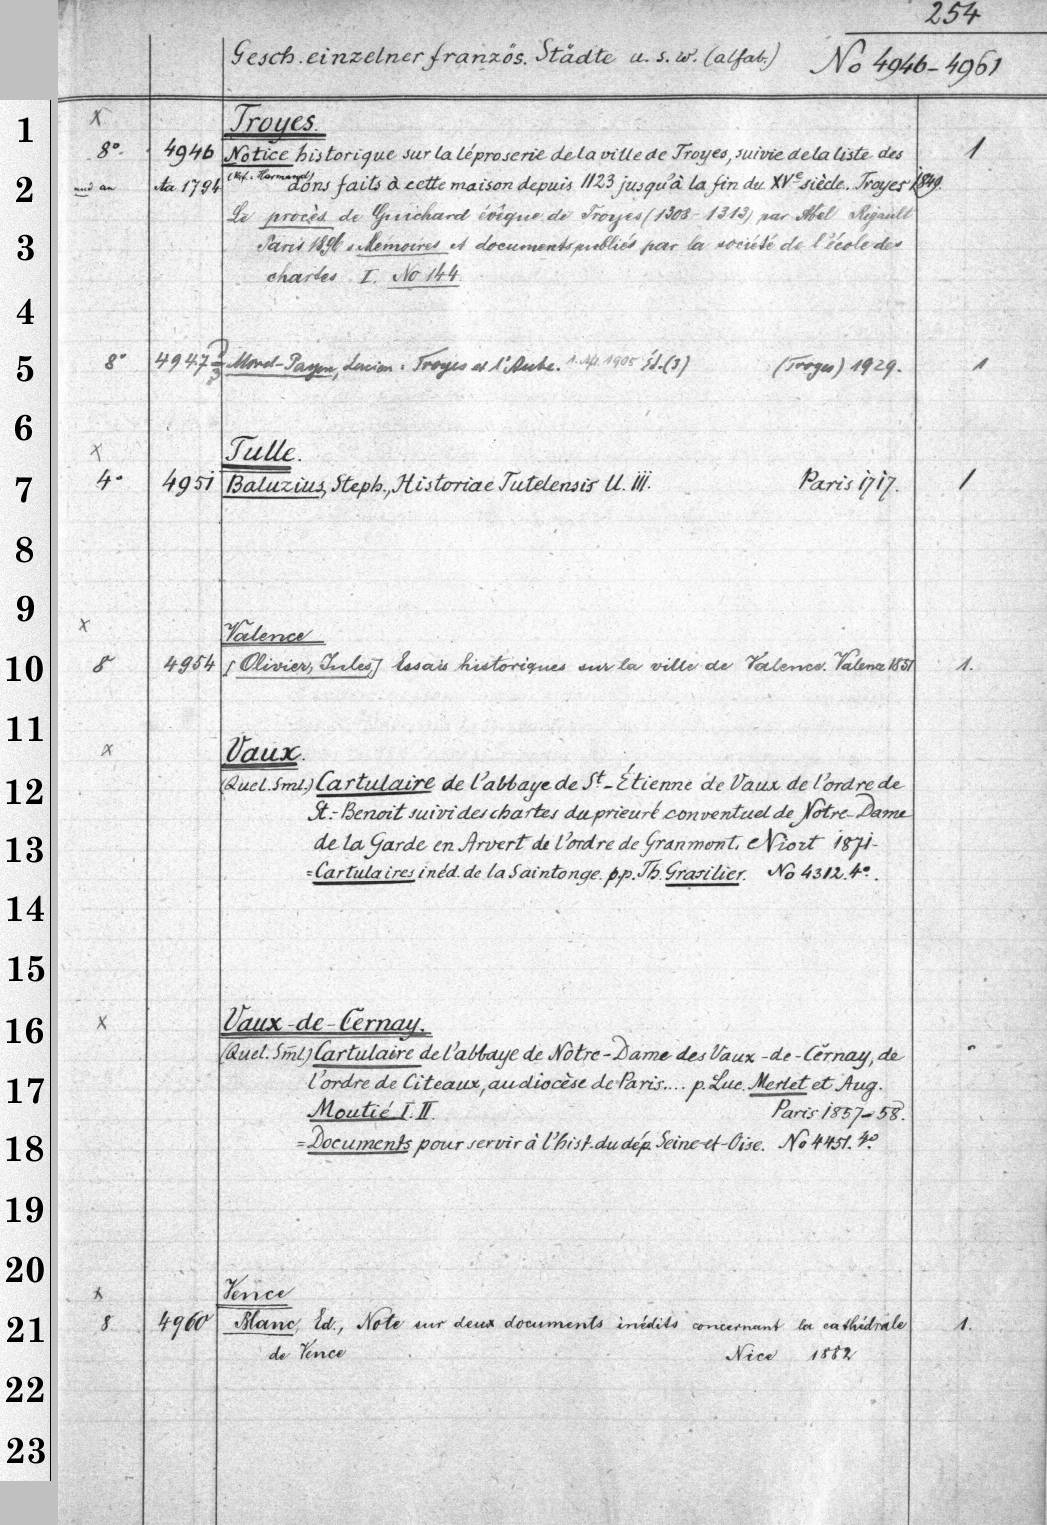 254
Gesch. einzelner französ. Städte u. s. w. (alfab.) No 4946-4961
1 x Troyes.
8°. 4946 Notice historique sur la léproserie de la ville de Troyes, suivie de la liste des 1
2 und an Aa 1794 (Verf. Harmand) dons faits à cette maison depuis 1123 jusqu'à la fin du XVe siècle. Troyes 1849.
Le procès de Guichard évêque de Troyes (1308-1313) par Abel Rigault
3 Paris 1896 = Mémoires et documents publiés par la société de l'école des
chartes I. No 144
4
5 8° 4947 Morel-Payen, Lucien: Troyes et l'Aube. Éd. (3) (Troyes) 1929. 1
6
x Tulle.
7 4° 4951 Baluzius, Steph., Historiae Tutelensis ll. III. Paris 1717. 1
8
9
x Valence
10 8 4954 [Olivier, Jules] Essais historiques sur la ville de Valence. Valence 1831 1.
11
x Vaux.
12 (Quel. Sml.) Cartulaire de l'abbaye de St-Étienne de Vaux de l'ordre de
St.-Benoit suivi des chartes du prieuré conventuel de Notre-Dame
13 de la Garde en Arvert de l'ordre de Granmont. Niort 1871-
= Cartulaires inéd. de la Saintonge. p.p. Th. Grasilier. No 4312.4°.
14
15
16 x Vaux-de-Cernay.
(Quel. Sml.) Cartulaire de l'abbaye de Notre-Dame des Vaux-de-Cernay, de
17 l'ordre de Citeaux, au diocèse de Paris.... p. Luc. Merlet et Aug.
Moutié I. II. Paris 1857-58.
18 = Documents pour servir à l'hist. du dép. Seine-et-Oise. No 4451.4°.
19
20
x Vence
21 8 4960 Blanc, Ed., Note sur deux documents inédits concernant la cathédrale 1.
de Vence Nice 1882
22
23